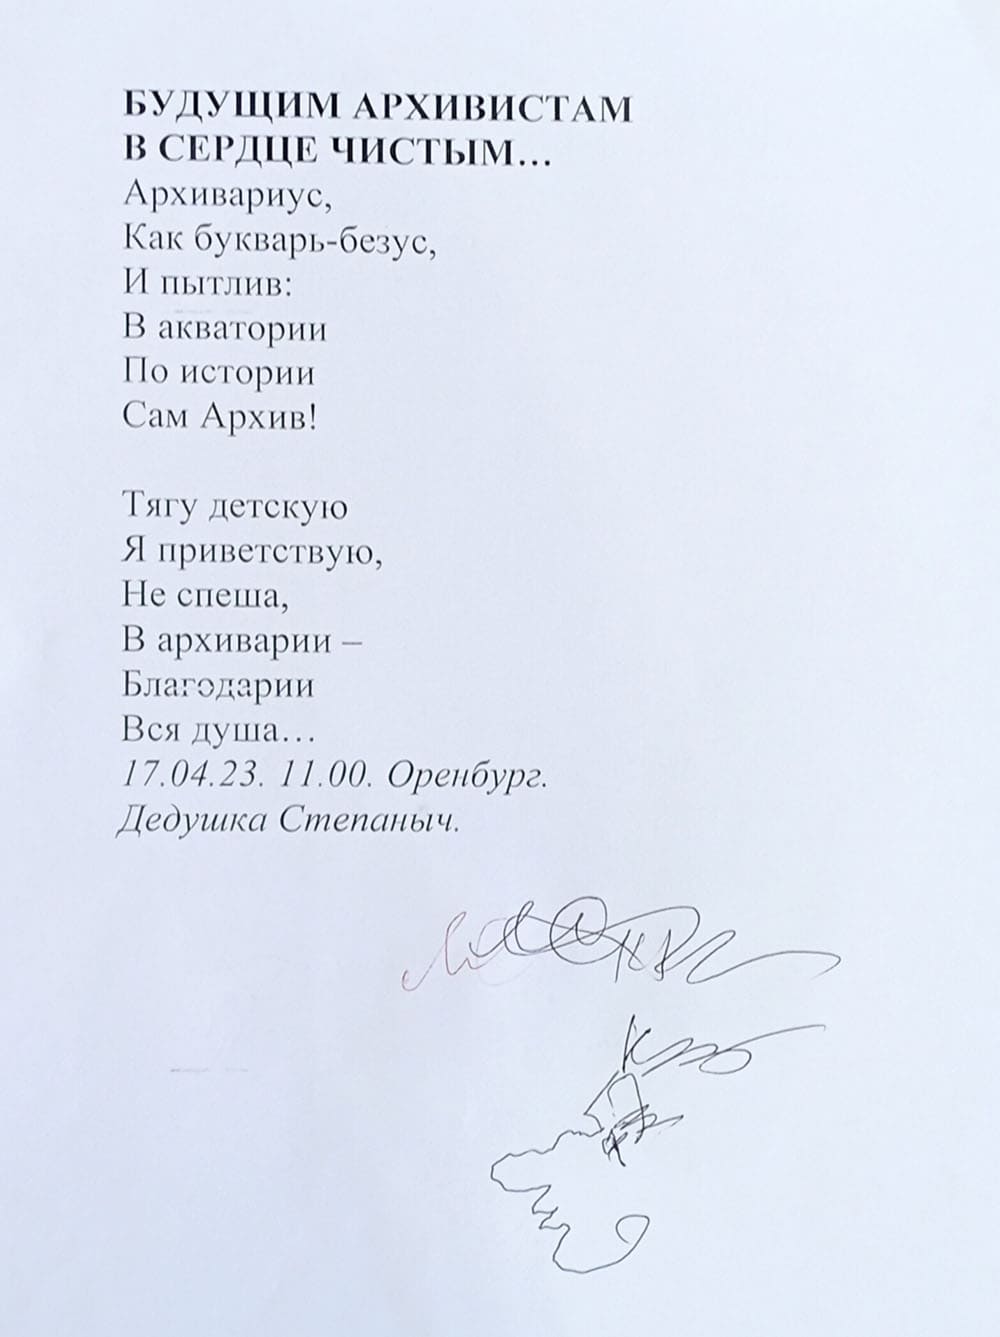 БУДУЩИМ АРХИВИСТАМ
В СЕРДЦЕ ЧИСТЫМ...
Архивариус,
Как букварь-безус,
И пытлив:
В акватории
По истории
Сам Архив!
Тягу детскую
Я приветствую,
Не спеша,
В архиварии –
Благодарии
Вся душа...
17.04.23. 11.00. Оренбург.
Дедушка Степаныч.